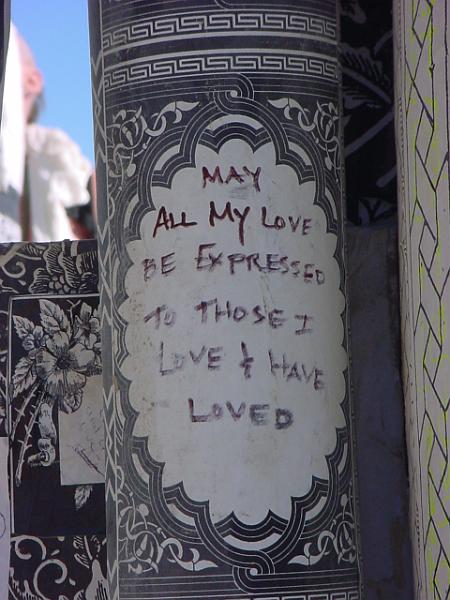 MAY
ALL MY LOVE
BE EXPRESSED
TO THOSE I
LOVE & HAVE
LOVED